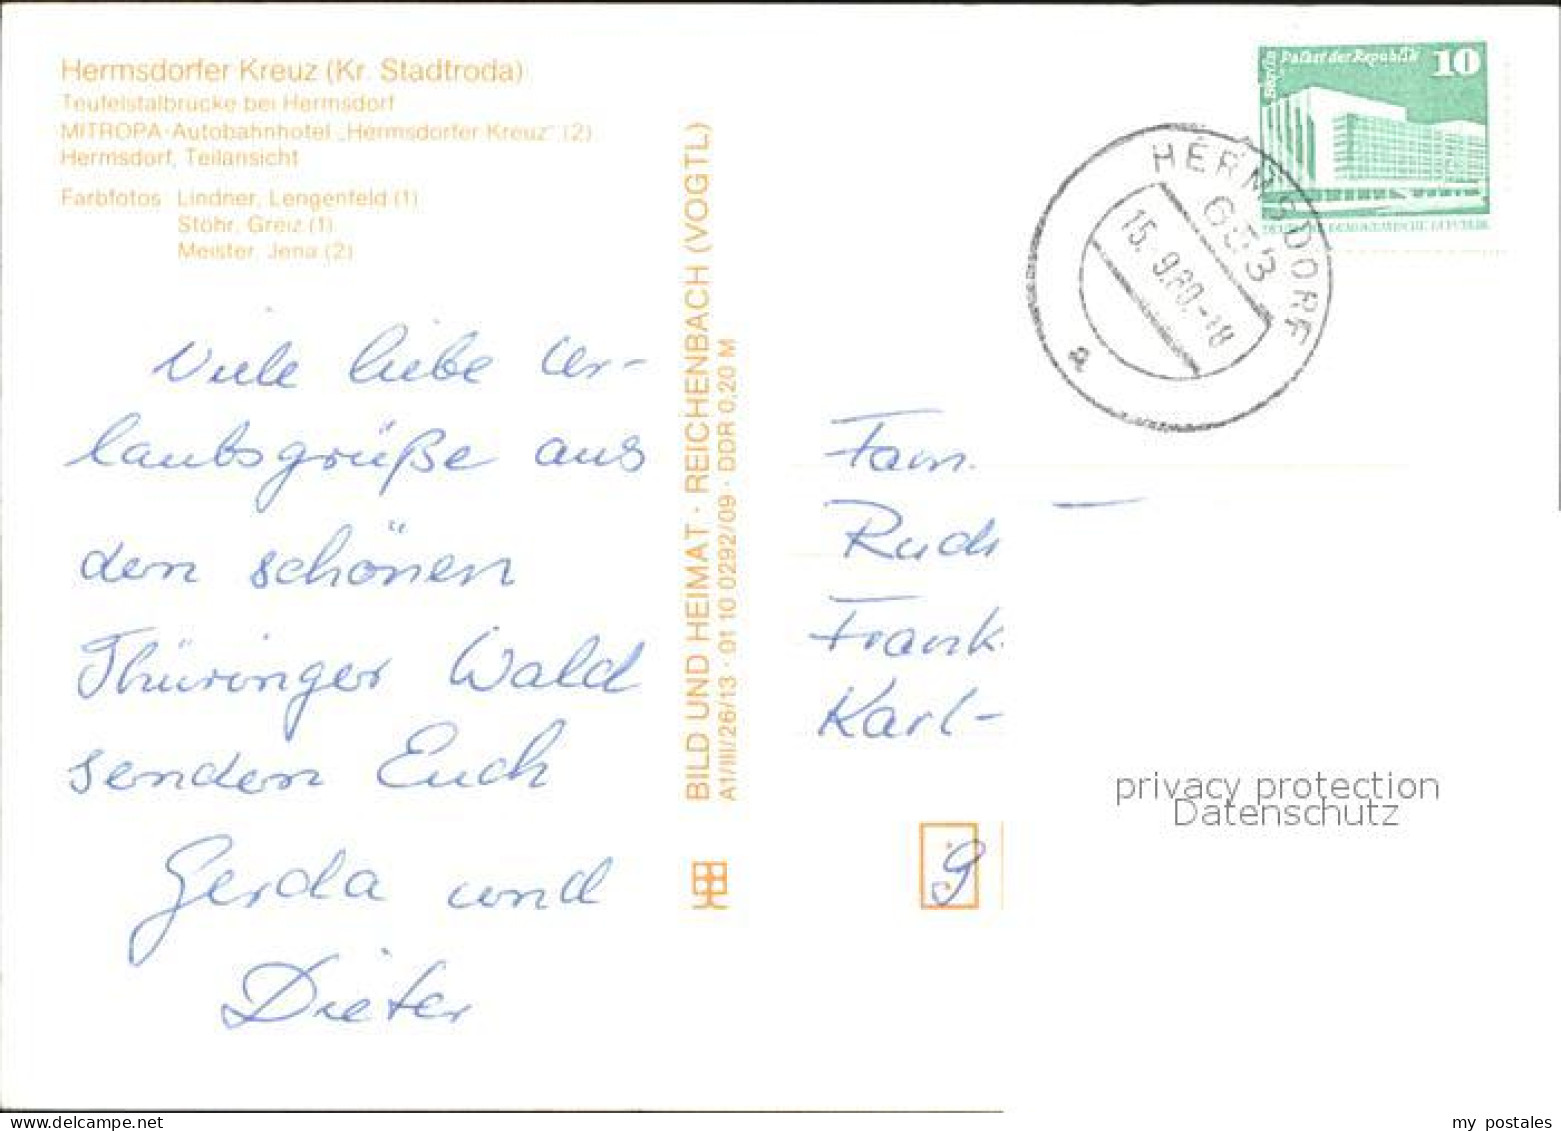 Hermsdorfer Kreuz (Kr. Stadtroda)
Teufelstalbrücke bei Hermsdorf
MITROPA-Autobahnhotel „Hermsdorfer Kreuz" (2)
Hermsdorf, Teilansicht
Farbfotos Lindner, Lengenfeld (1)
Stöhr, Greiz (1)
Meister, Jena (2)
Viele liebe Ur-
laubsgrüße aus
den schönen
Thüringer Wald
senden Euch
Gerda und
Dieter
BILD UND HEIMAT · REICHENBACH (VOGTL)
A1/III/26/13 · 01 10 0292/09 · DDR 0,20 M
Berlin
Palast der Republik
10
DEUTSCHE DEMOKRATISCHE REPUBLIK
HERMSDORF
653
15.9.80.-18
a
Fam.
Rudi
Frank
Karl-
9
privacy protection
Datenschutz
my postales